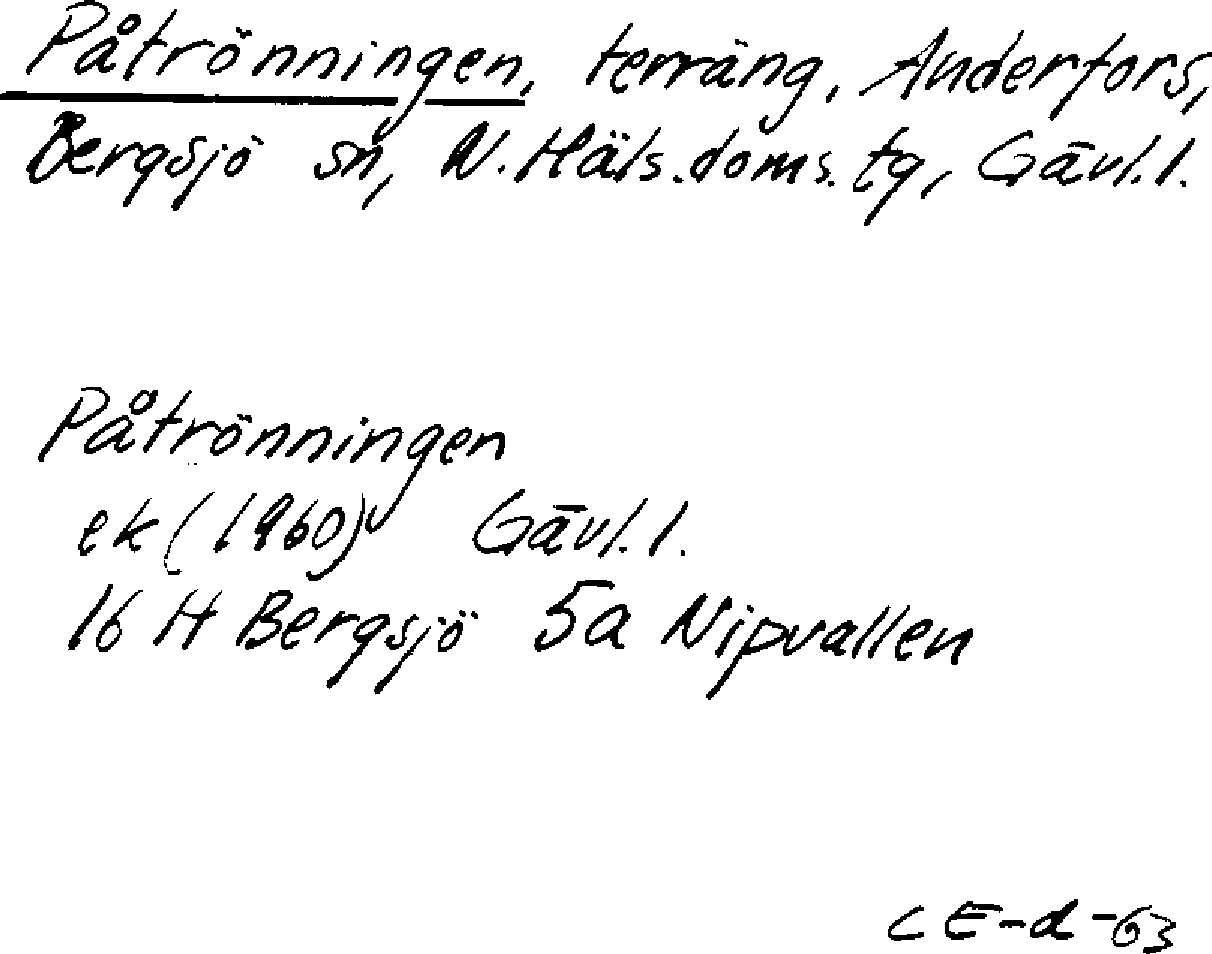 Påtrönningen, terräng, Anderfors,
Bergsjö sn, N. Häls. doms. tg, Gävl. l.
Påtrönningen
ek (1960) Gävl. l.
16 H Bergsjö 5a Nipvallen
CE-d-63